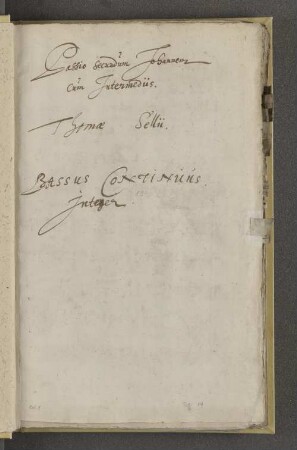 Passio secundùm Johannem
Cùm Intermediis.
Thomæ Sellii.
BASSUS CONTINUUS.
Integer